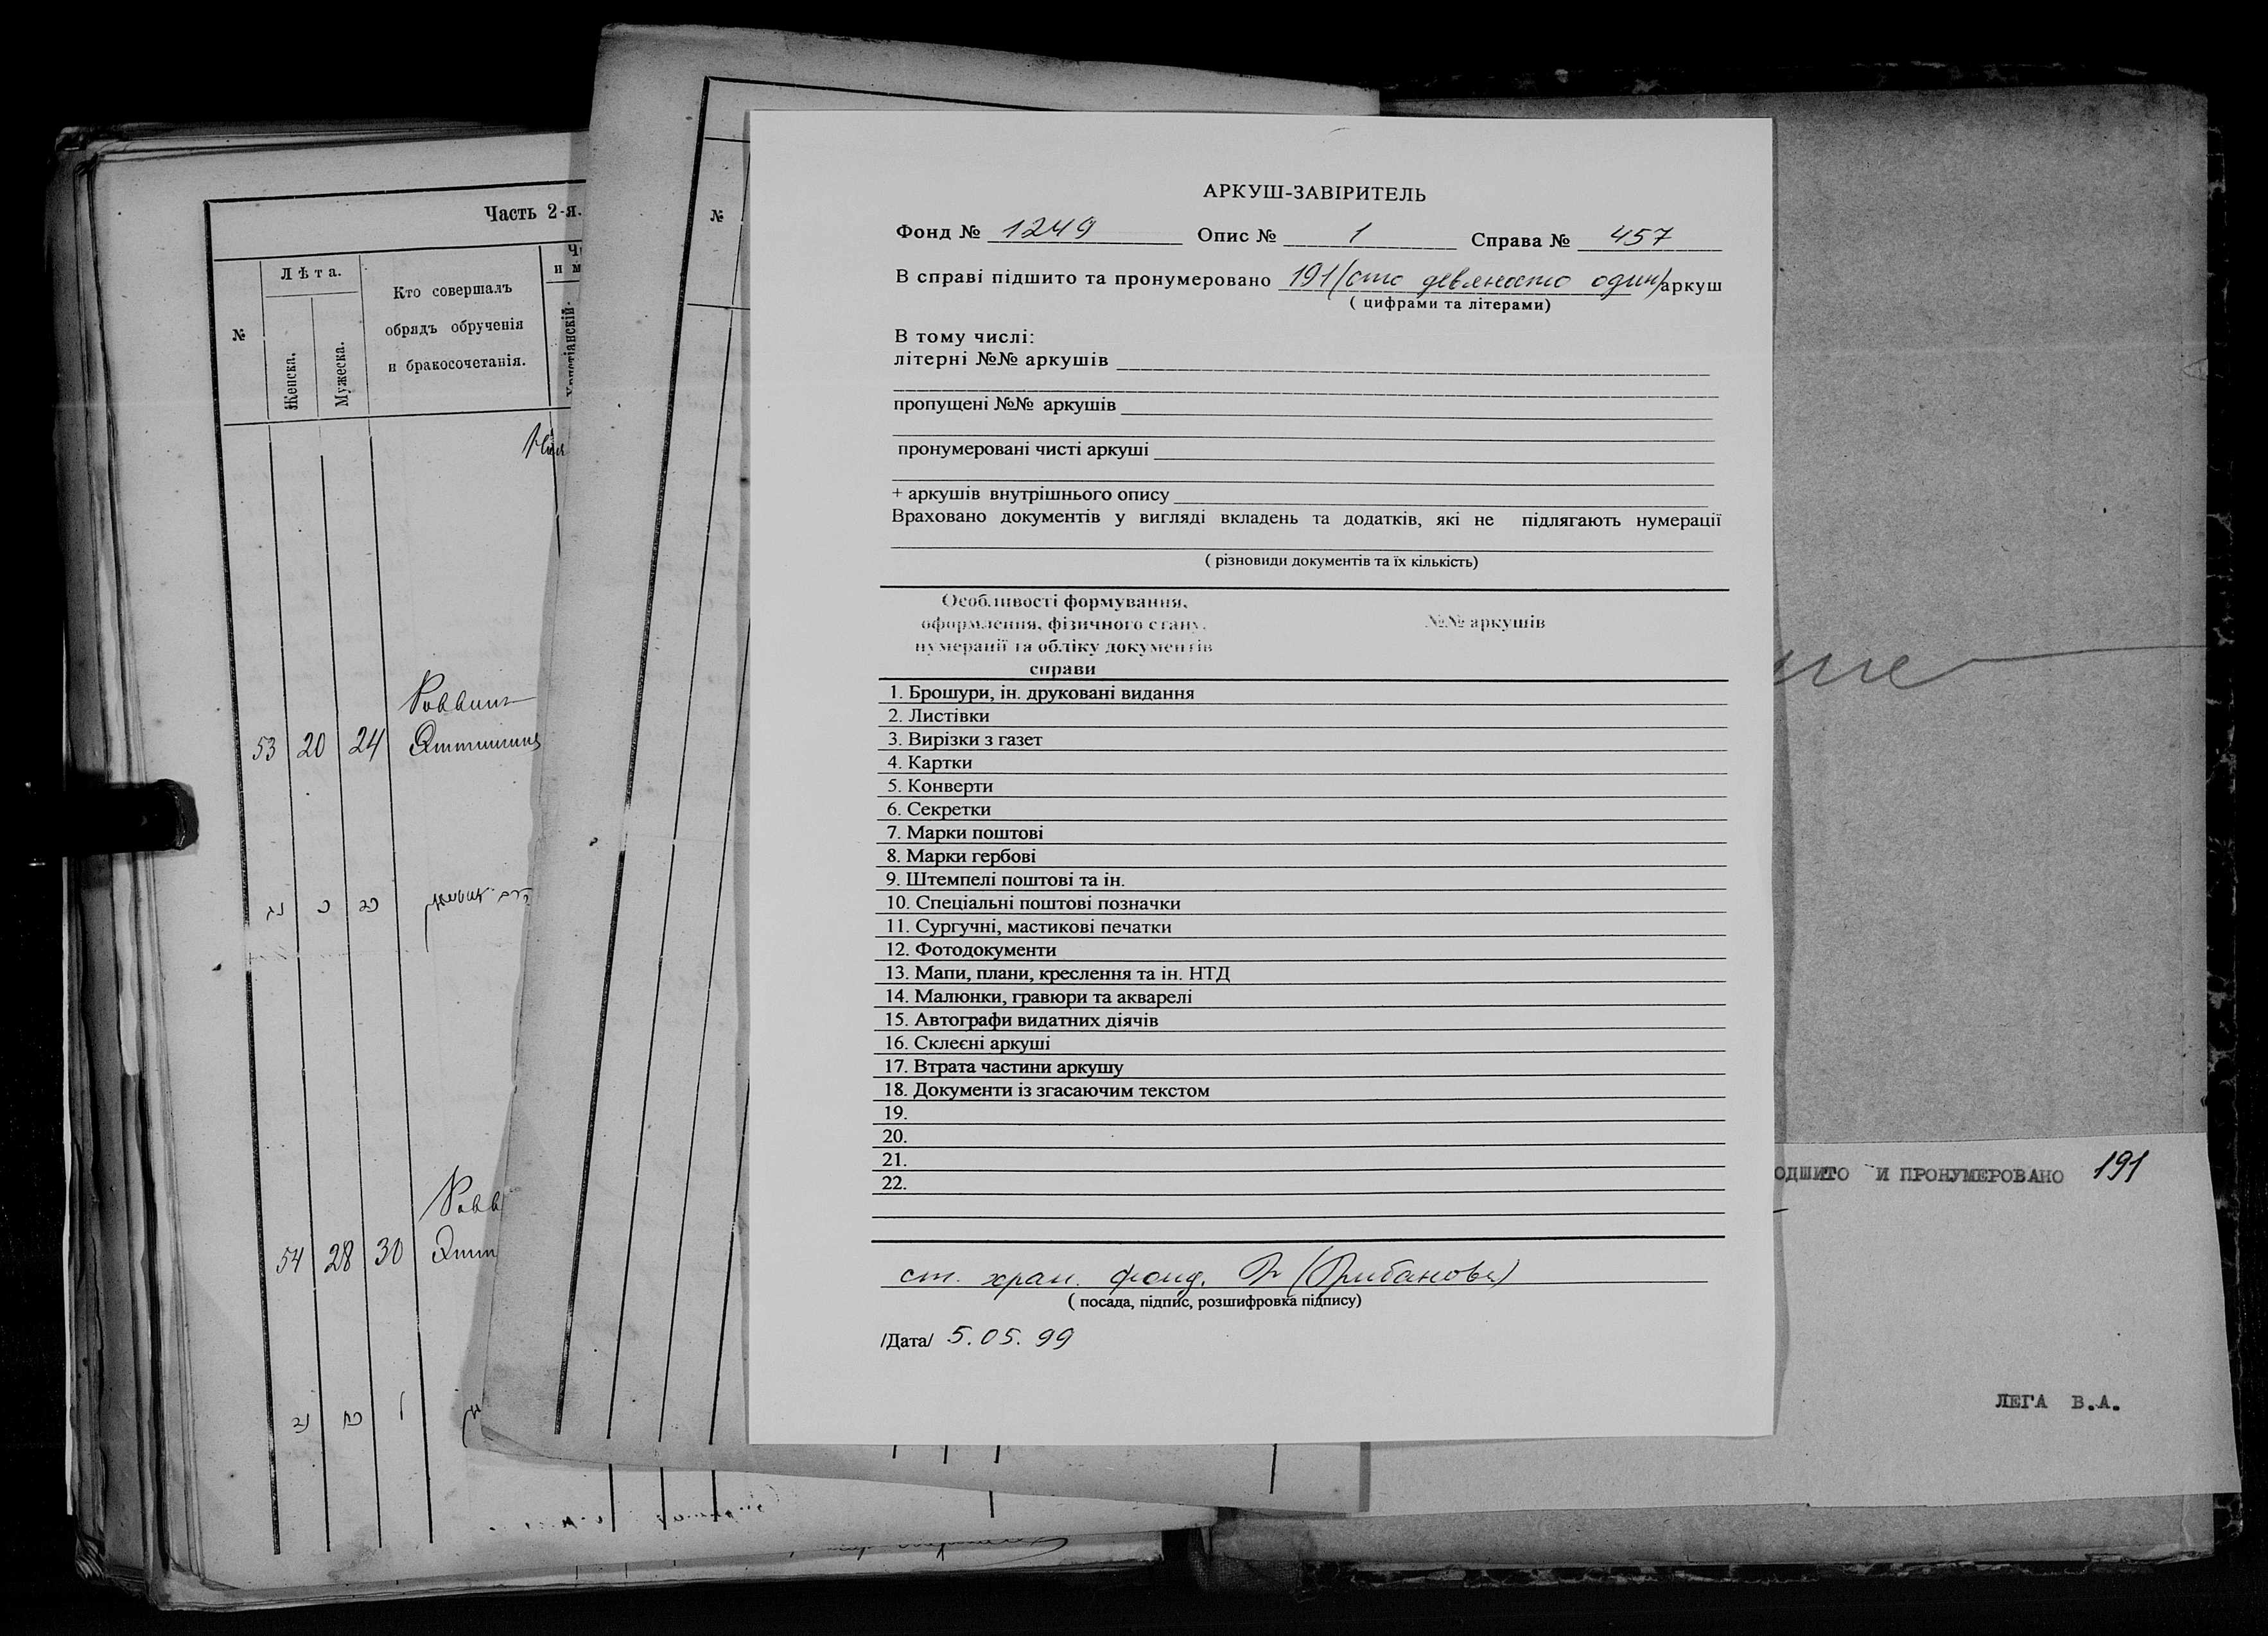 Часть 2-я.
№
Лѣта.
Женска.
Мужеска.
Кто совершалъ
обрядъ обрученія
и бракосочетанія.
53 20 24 Раввинъ
54 28 30 Равв
№
АРКУШ-ЗАВІРИТЕЛЬ
Фонд № 1249 Опис № 1 Справа № 457
В справі підшито та пронумеровано 191 (сто девяносто один) аркуш
( цифрами та літерами)
В тому числі:
літерні №№ аркушів
пропущені №№ аркушів
пронумеровані чисті аркуші
+ аркушів внутрішнього опису
Враховано документів у вигляді вкладень та додатків, які не підлягають нумерації
( різновиди документів та їх кількість)
Особливості формування,
оформлення, фізичного стану,
нумерації та обліку документів
справи
№№ аркушів
1. Брошури, ін. друковані видання
2. Листівки
3. Вирізки з газет
4. Картки
5. Конверти
6. Секретки
7. Марки поштові
8. Марки гербові
9. Штемпелі поштові та ін.
10. Спеціальні поштові позначки
11. Сургучні, мастикові печатки
12. Фотодокументи
13. Мапи, плани, креслення та ін. НТД
14. Малюнки, гравюри та акварелі
15. Автографи видатних діячів
16. Склеєні аркуші
17. Втрата частини аркушу
18. Документи із згасаючим текстом
19.
20.
21.
22.
ст. хран. фонд. (Грибанова)
( посада, підпис, розшифровка підпису)
/Дата/ 5.05.99
ОДШИТО И ПРОНУМЕРОВАНО 191
ЛЕГА В.А.